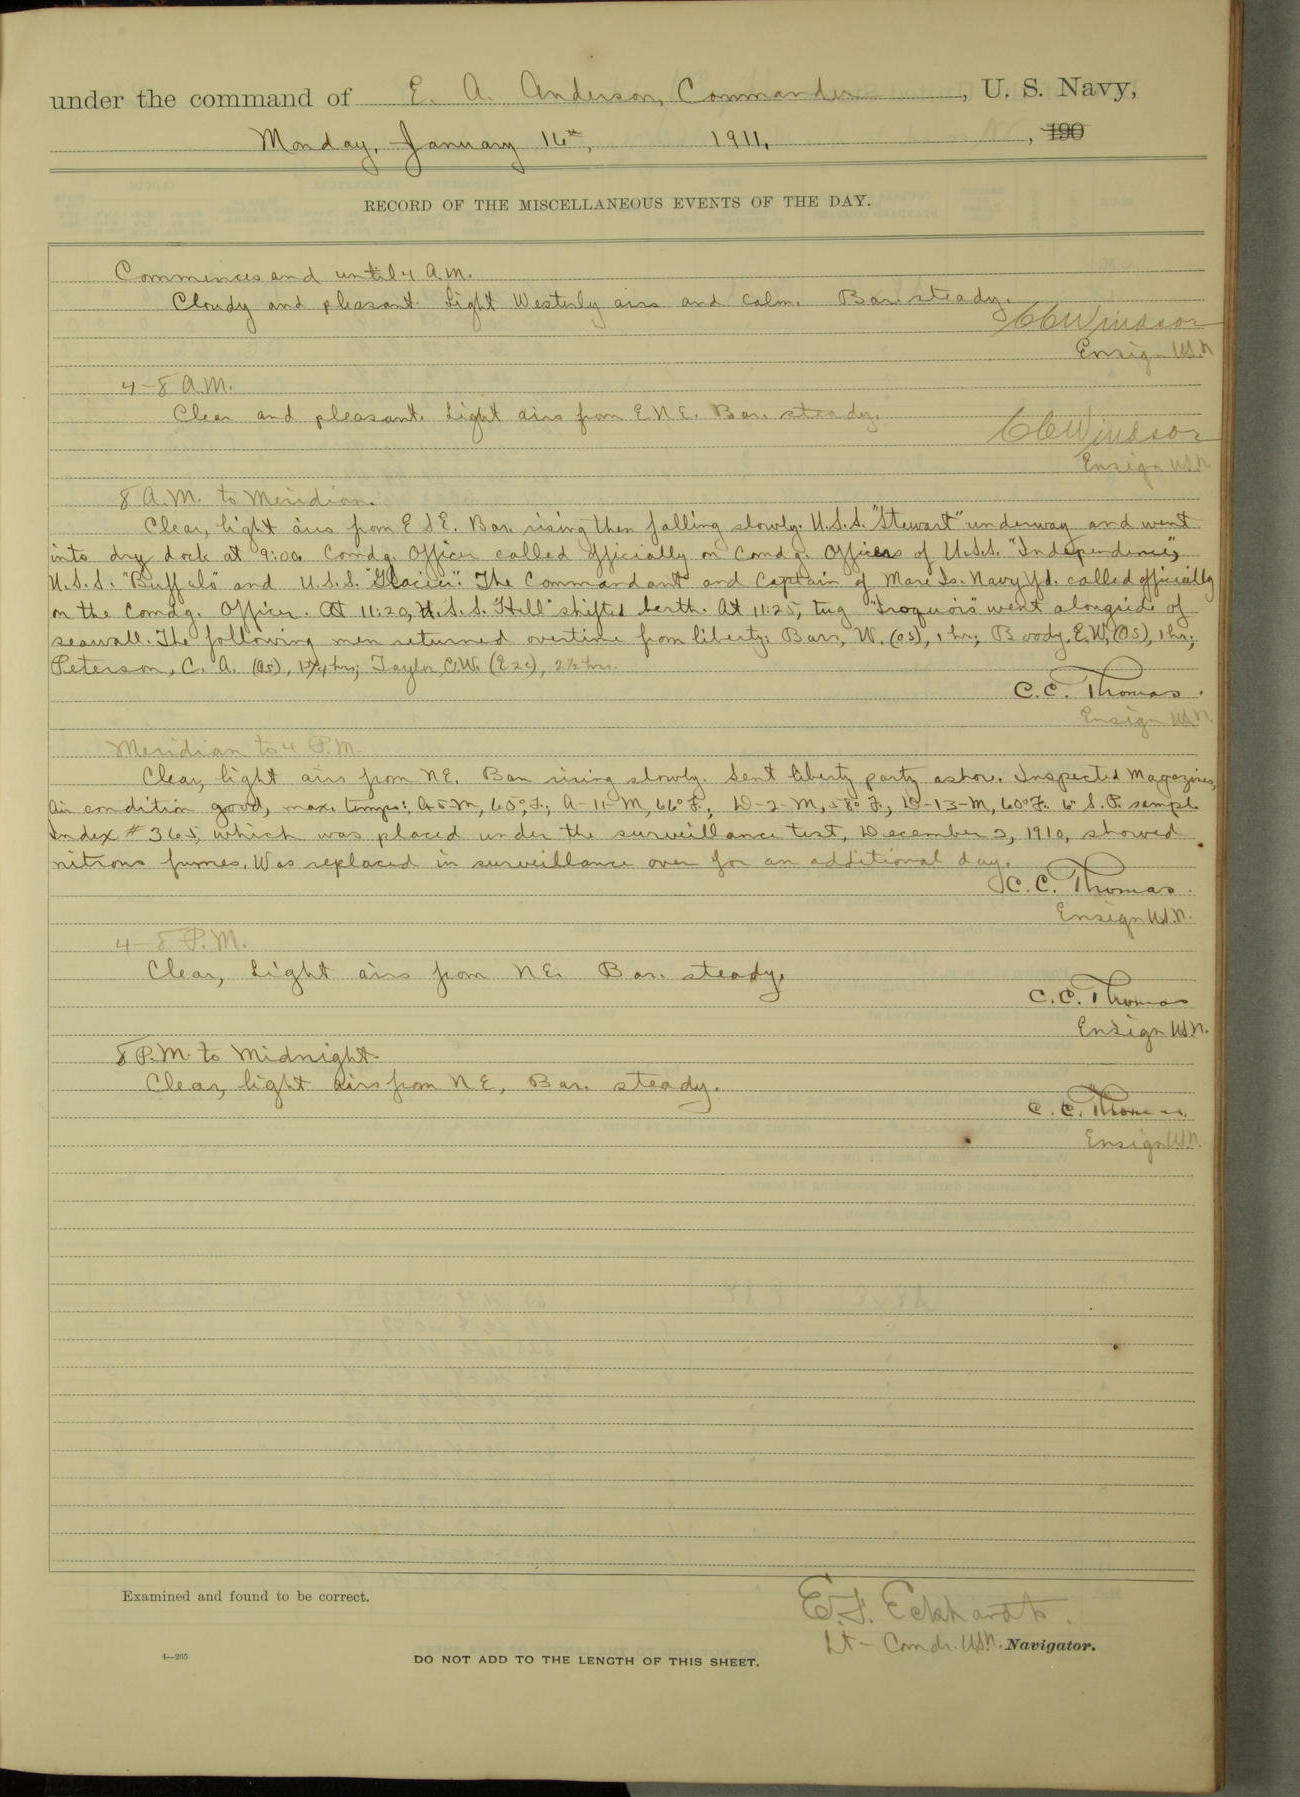 under the command of E. A. Anderson, Commander, U. S. Navy,
Monday, January 16th, 1911, 190
RECORD OF THE MISCELLANEOUS EVENTS OF THE DAY.
Commences and until 4 A.M.
Cloudy and pleasant. Light Westerly airs and calm. Bar. steady.
CCWindsor
Ensign U.S.N
4-8 A.M.
Clear and pleasant. Light airs from E N E. Bar. steady.
CCWindsor
Ensign U.S.N.
8 A.M. to Meridian.
Clear, light airs from E S E. Bar. rising then falling slowly. U.S.S. "Stewart" underway and went
into dry dock at 9:00. Comdg. Officer called officially on Comdg. Officers of U.S.S. "Independence",
U.S.S. "Buffalo" and U.S.S. "Glacier". The Commandant and Captain of Mare Is. Navy Yd. called officially
on the Comdg. Officer. At 11:20, U.S.S. "Hull" shifted berth. At 11:25, tug "Iroquois" went alongside of
seawall. The following men returned overtime from liberty: Barr, W. (OS), 1 hr; Boody, E.W. (OS), 1 hr;
Peterson, C. A. (OS), 1¾ hrs; Taylor, C.W. (E2c), 2½ hrs.
C.C. Thomas.
Ensign U.S.N.
Meridian to 4 P.M.
Clear, light airs from NE. Bar. rising slowly. Sent liberty party ashore. Inspected Magazines,
Air condition good, max. temps: A-5-M, 60°F.; A-11-M, 66°F.; D-2-M, 58°F.; D-13-M, 60°F. 6" S.P. sample
Index #365, which was placed under the surveillance test, December 2, 1910, showed
nitrous fumes. Was replaced in surveillance oven for an additional day.
C.C. Thomas.
Ensign U.S.N.
4-8 P.M.
Clear, Light airs from NE. Bar. steady.
C.C. Thomas
Ensign U.S.N.
8 P.M. to Midnight.
Clear, light airs from N E, Bar. steady.
C.C. Thomas.
Ensign U.S.N.
Examined and found to be correct.
E.F. Eckhardt.
Lt-Comdr. U.S.N. Navigator.
4—265
DO NOT ADD TO THE LENGTH OF THIS SHEET.